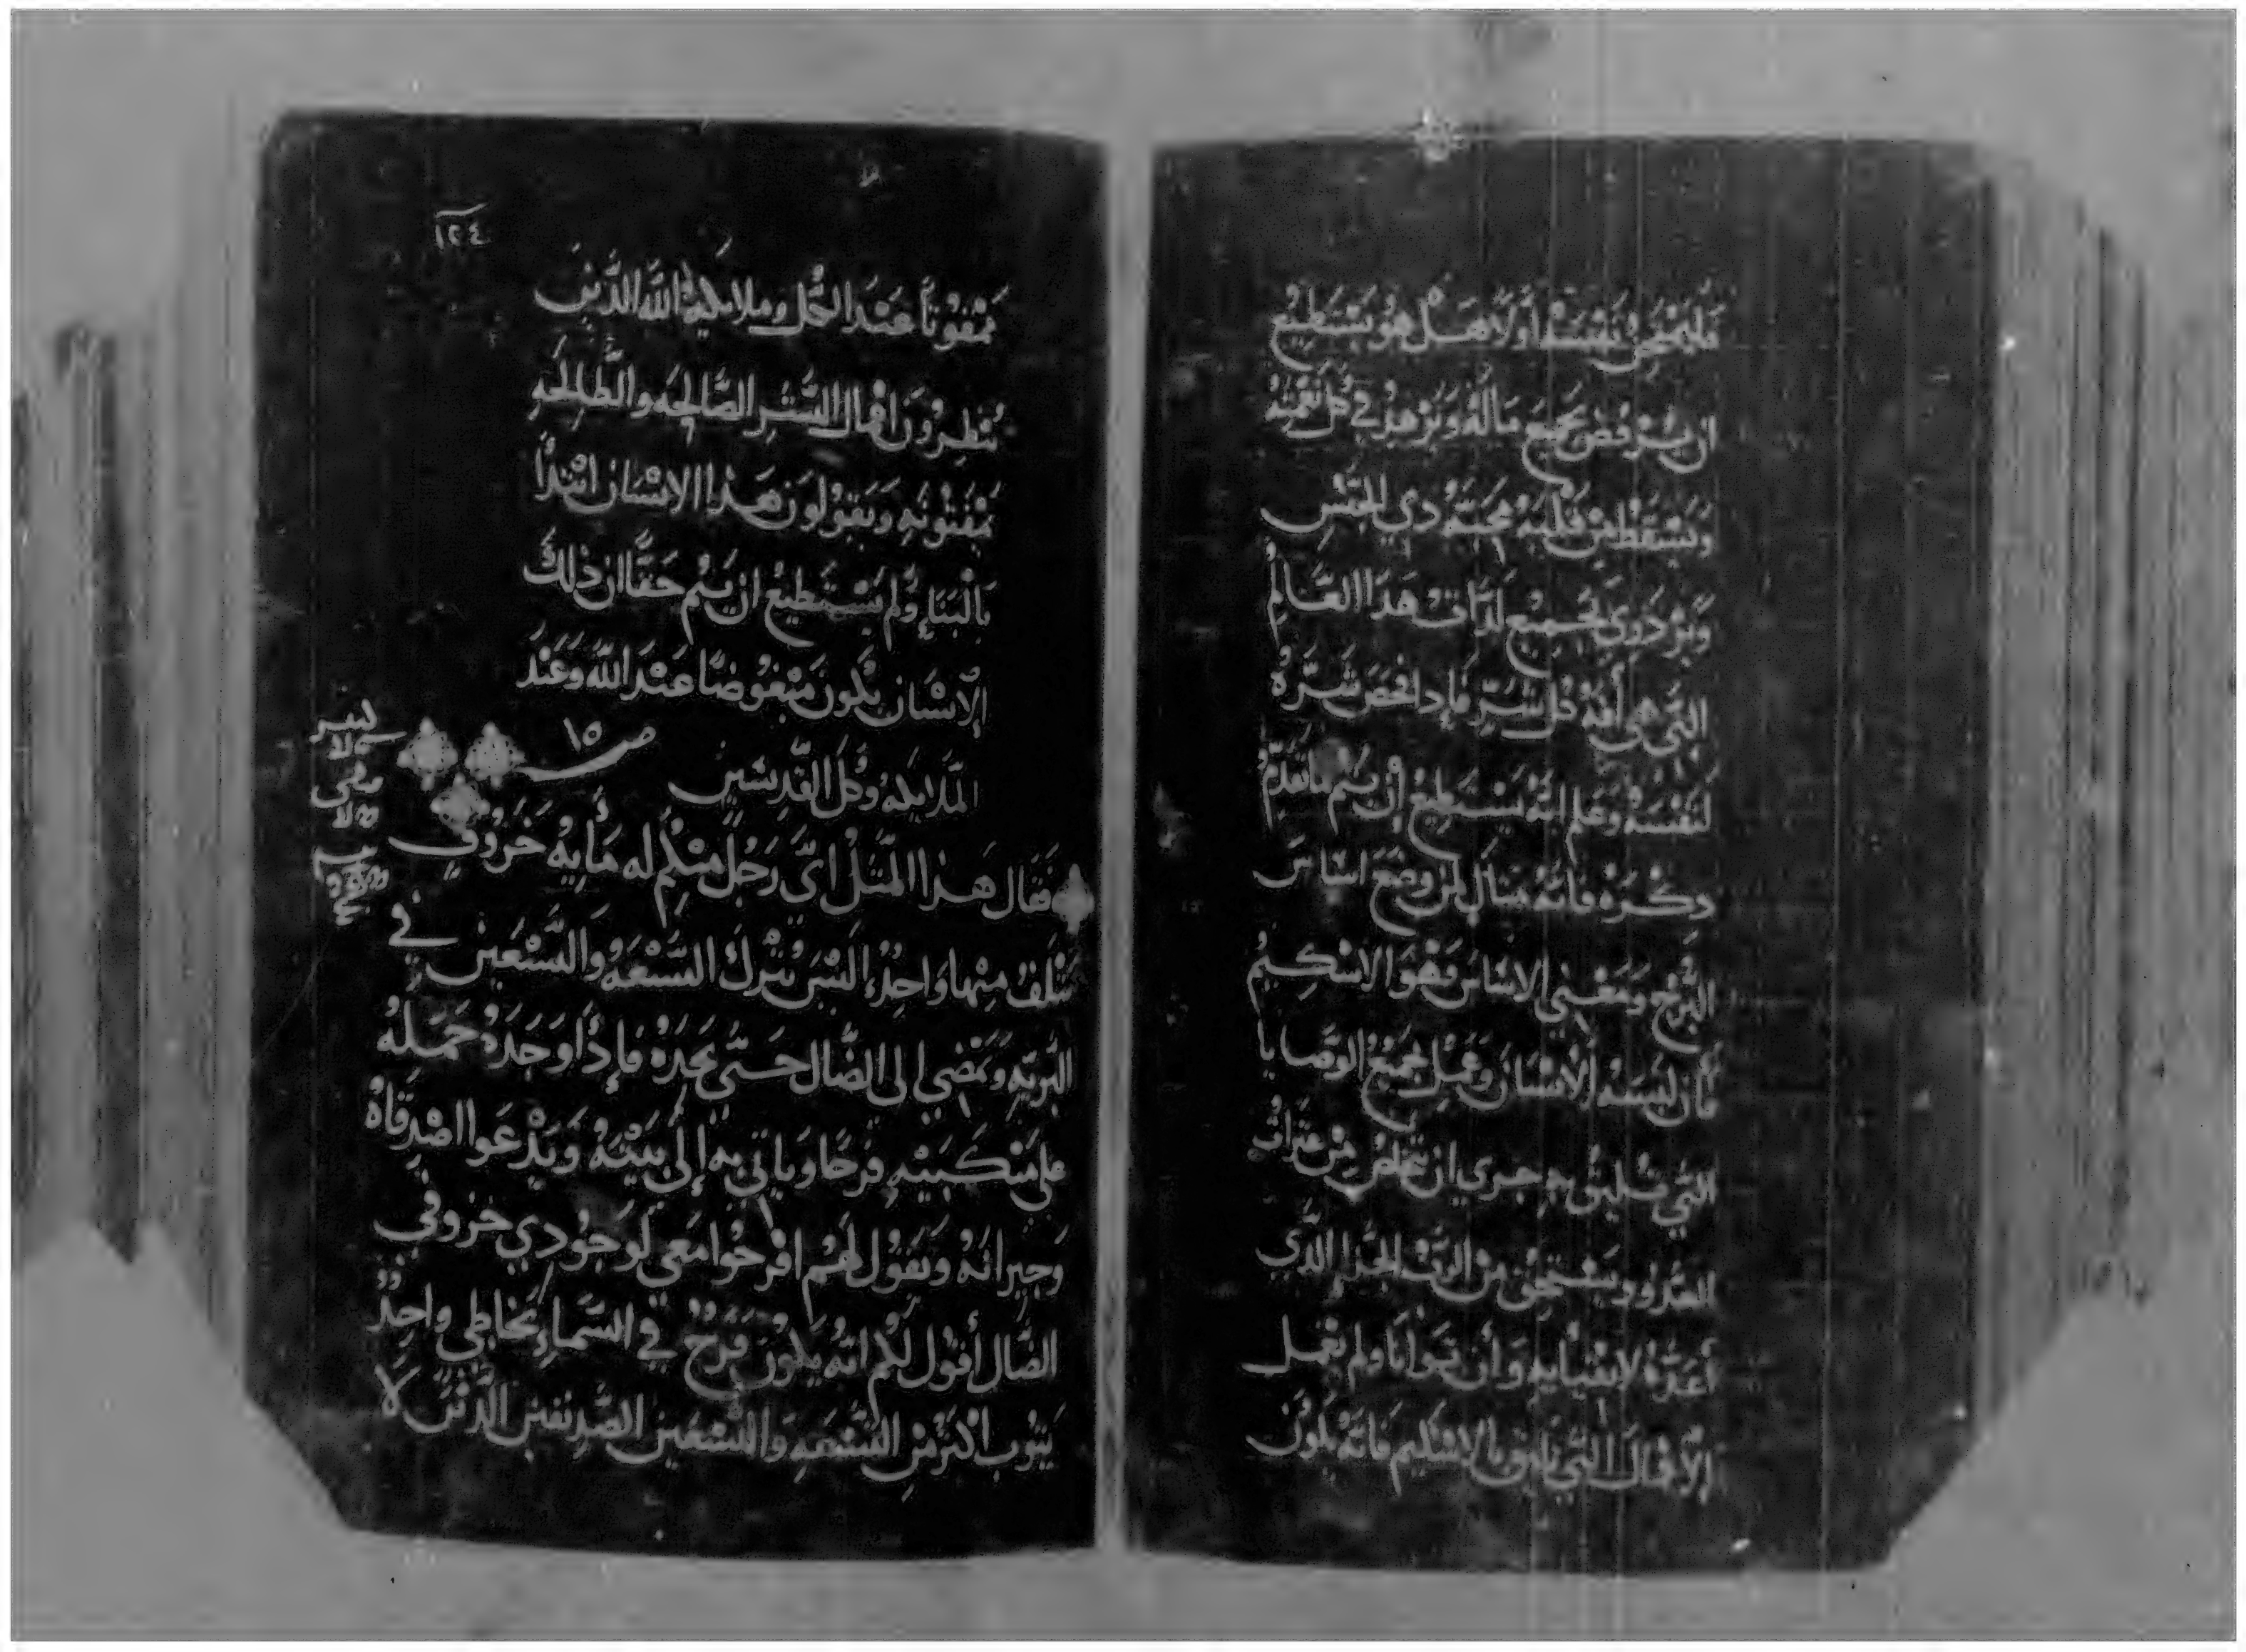 فليمتحن نفسه أولا هل هو يستطيع
ان يرفض جميع ماله ويزهد في كل نعمته
ويسقط من قلبه محبة دي الجنس
ويزدري بجميع لذات هذا العالم
التي هي أفة كل شر فإدا فحص شره
لنفسه وعلم انه يستطيع أن يتم ما تقدم
دكره فانه مثال لمن وضع اساس
البرج ومعني الاساس فهو الاسكيم
فأن لبسه الإنسان وعمل بجميع الوصايا
التي تليق به جري ان يتخلص من عثرات
العدو ويستحق من الرب الجزا الدي
أعده لانبيايه وأن توانا ولم يعمل
الإفعال التي تليق بالاسكيم فانه يكون
١٢٤
ممقوتاً عند الكل وملايكة الله الذين
ينظرون افعال البشر الصالحه والطالحه
يمقتونه ويقولون هذا الانسان ابتدأ
بالبناء ولم يستطيع ان يتم حقا ان ذلك
الإنسان يكون مبغوضا عند الله وعند
الملايكه وكل القديسين ص ١٥
فقال هذا المثل اي رجل منكم له مأيه خروف
يتلف منها واحدٌ، اليس يترك التسعه والتسعين في
البريه ويمضي الى الضال حتى يجده فإذا وجده حمله
على منكبيه فرحا وياتي به إلى بيته ويدعوا اصدقاه
وجيرانه ويقول لهم افرحوا معي لوجودي خروفي
الضال أقول لكم انه يكون فرح في السماء بخاطي واحدٌ
يتوب اكثر من التسعه والتسعين الصديقين الذين لا